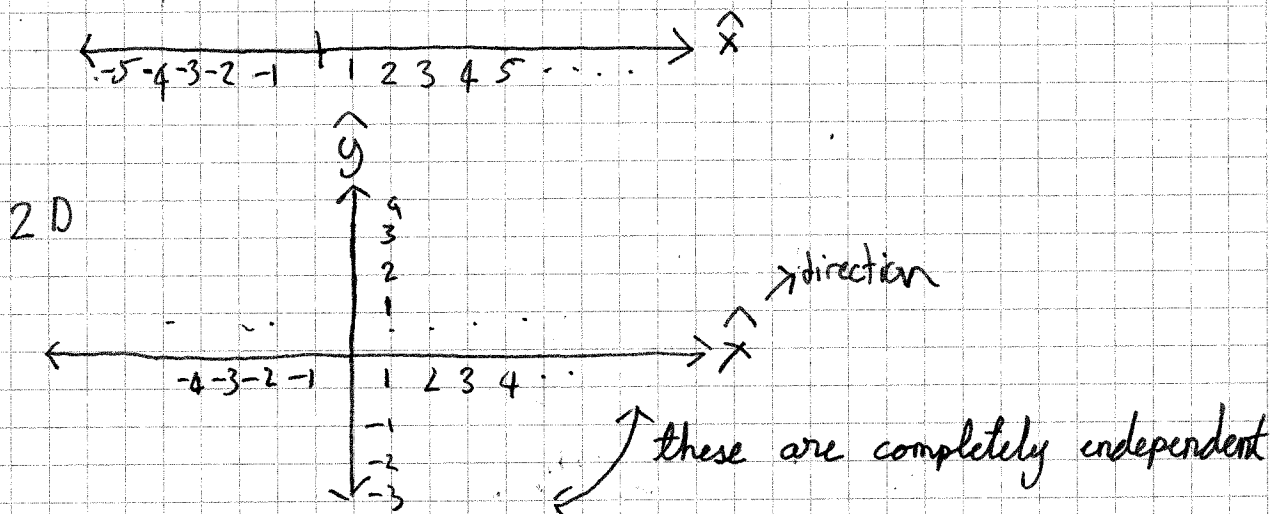 x̂
-5 -4 -3 -2 -1 1 2 3 4 5 ....
ŷ
2D
4
3
2
1
direction
x̂
-4 -3 -2 -1 1 2 3 4 ..
-1
-2
-3
these are completely endependent